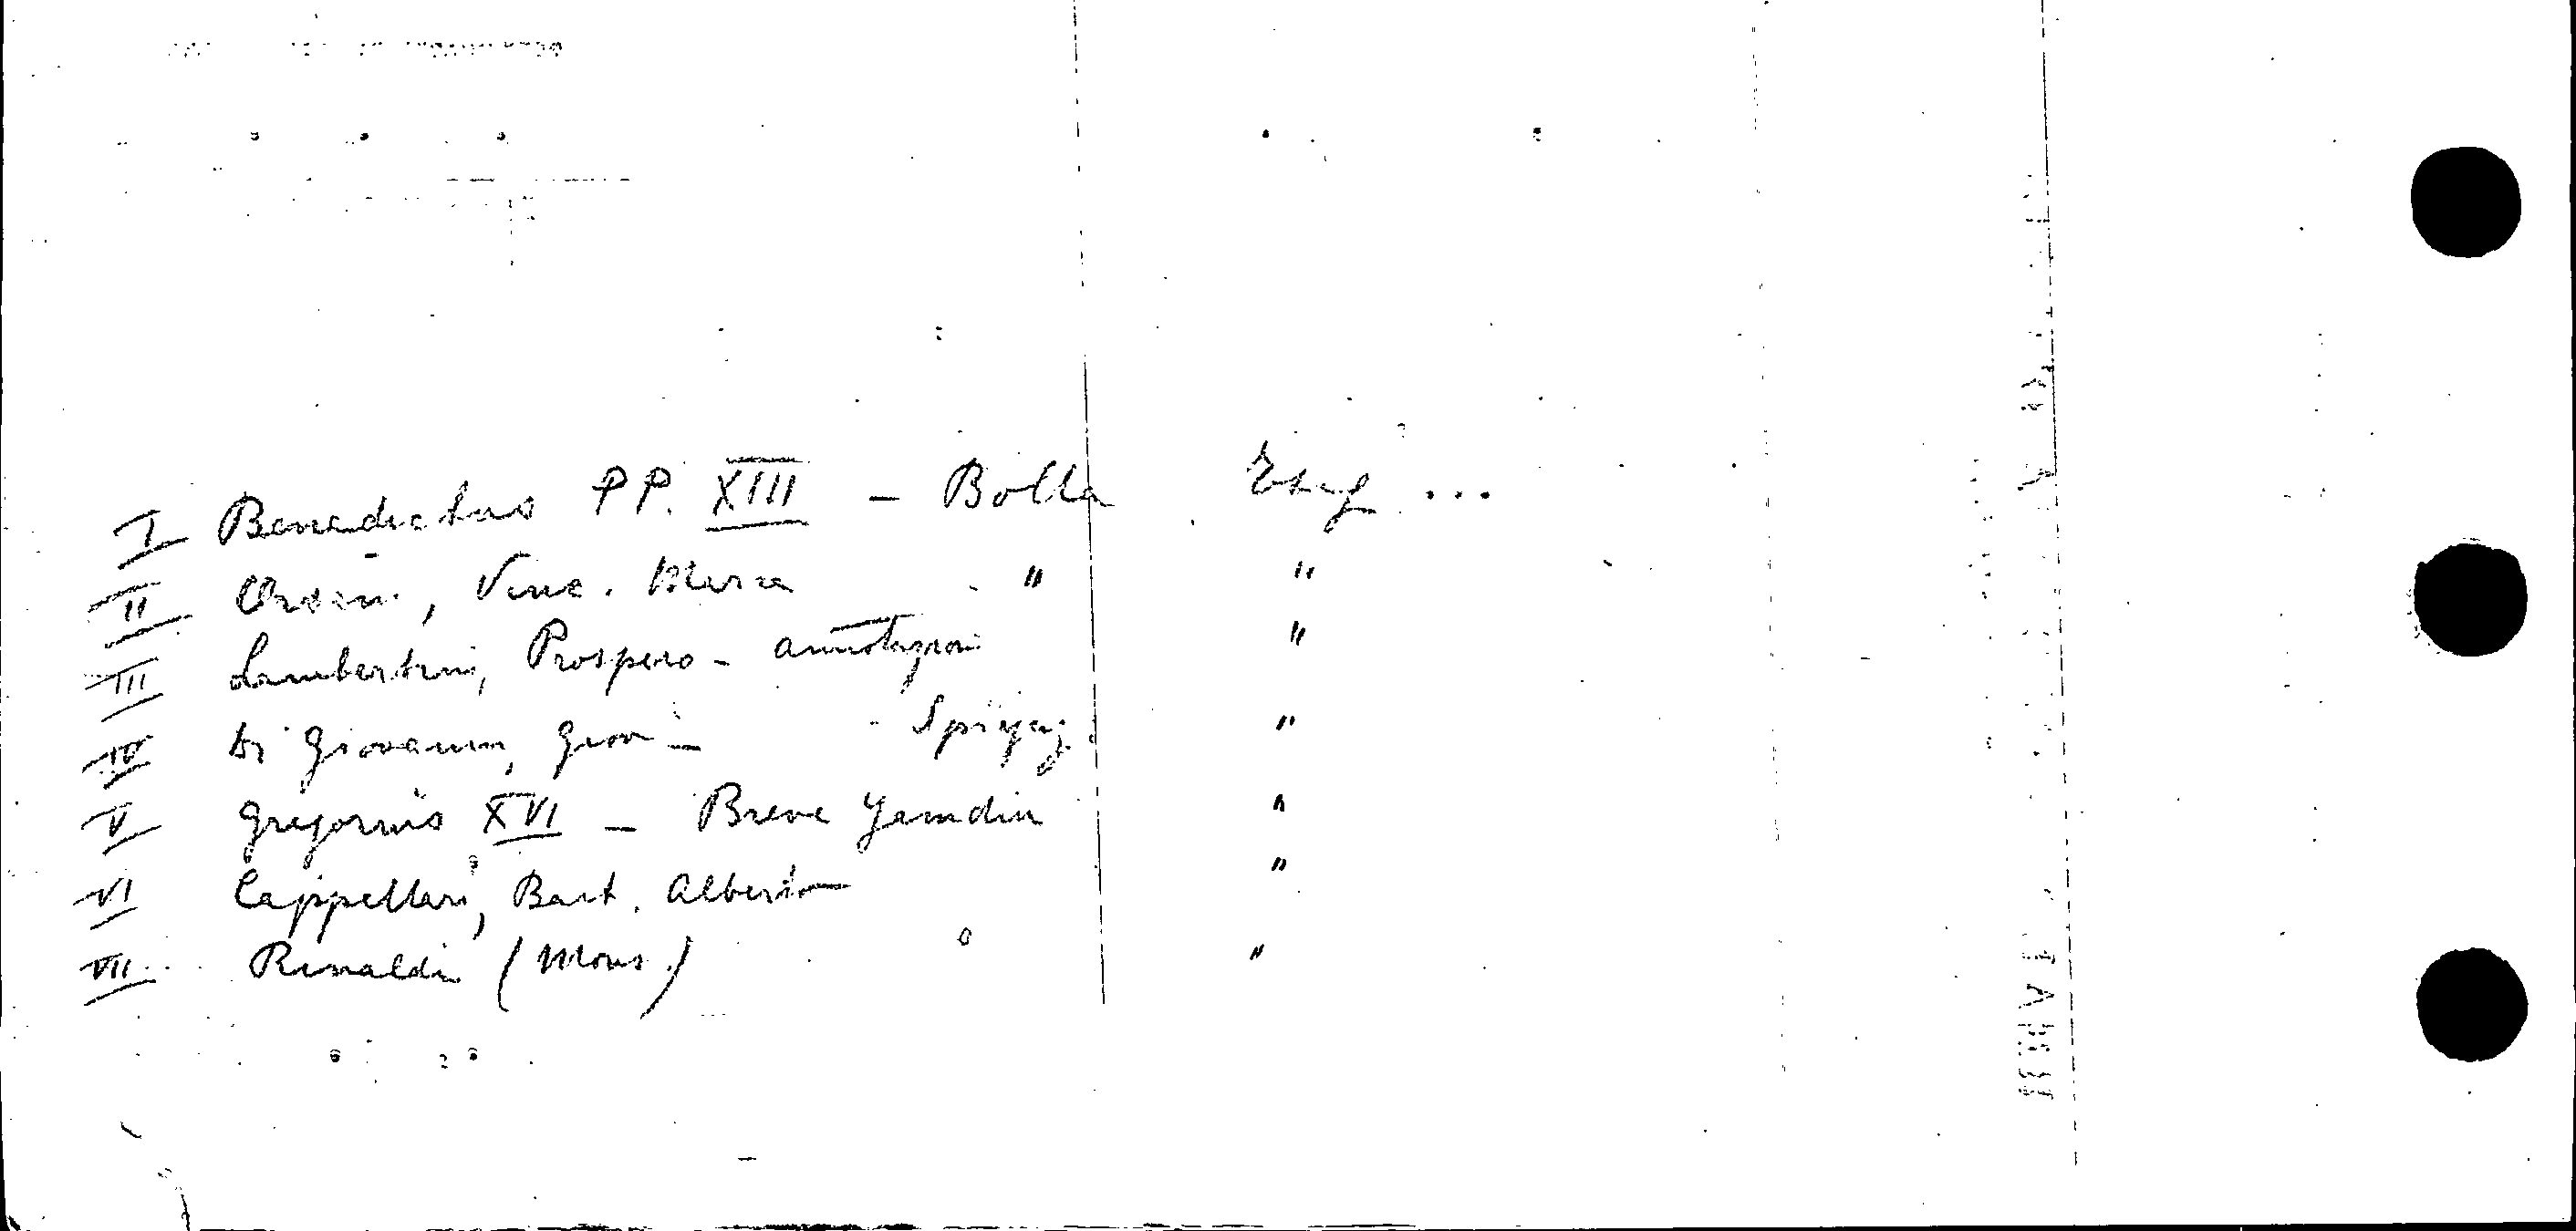 I Benedictus PP. XIII - Bolla Esug ...
II Orsini, Vinc. Maria " "
III Lambertini, Prospero - annotazioni "
IV Di Giovanni, Giov - Spiegaz. "
V Gregorius XVI - Breve "
VI Cappellari, Bart. Alberto "
VII Rinaldi (Mons.) "